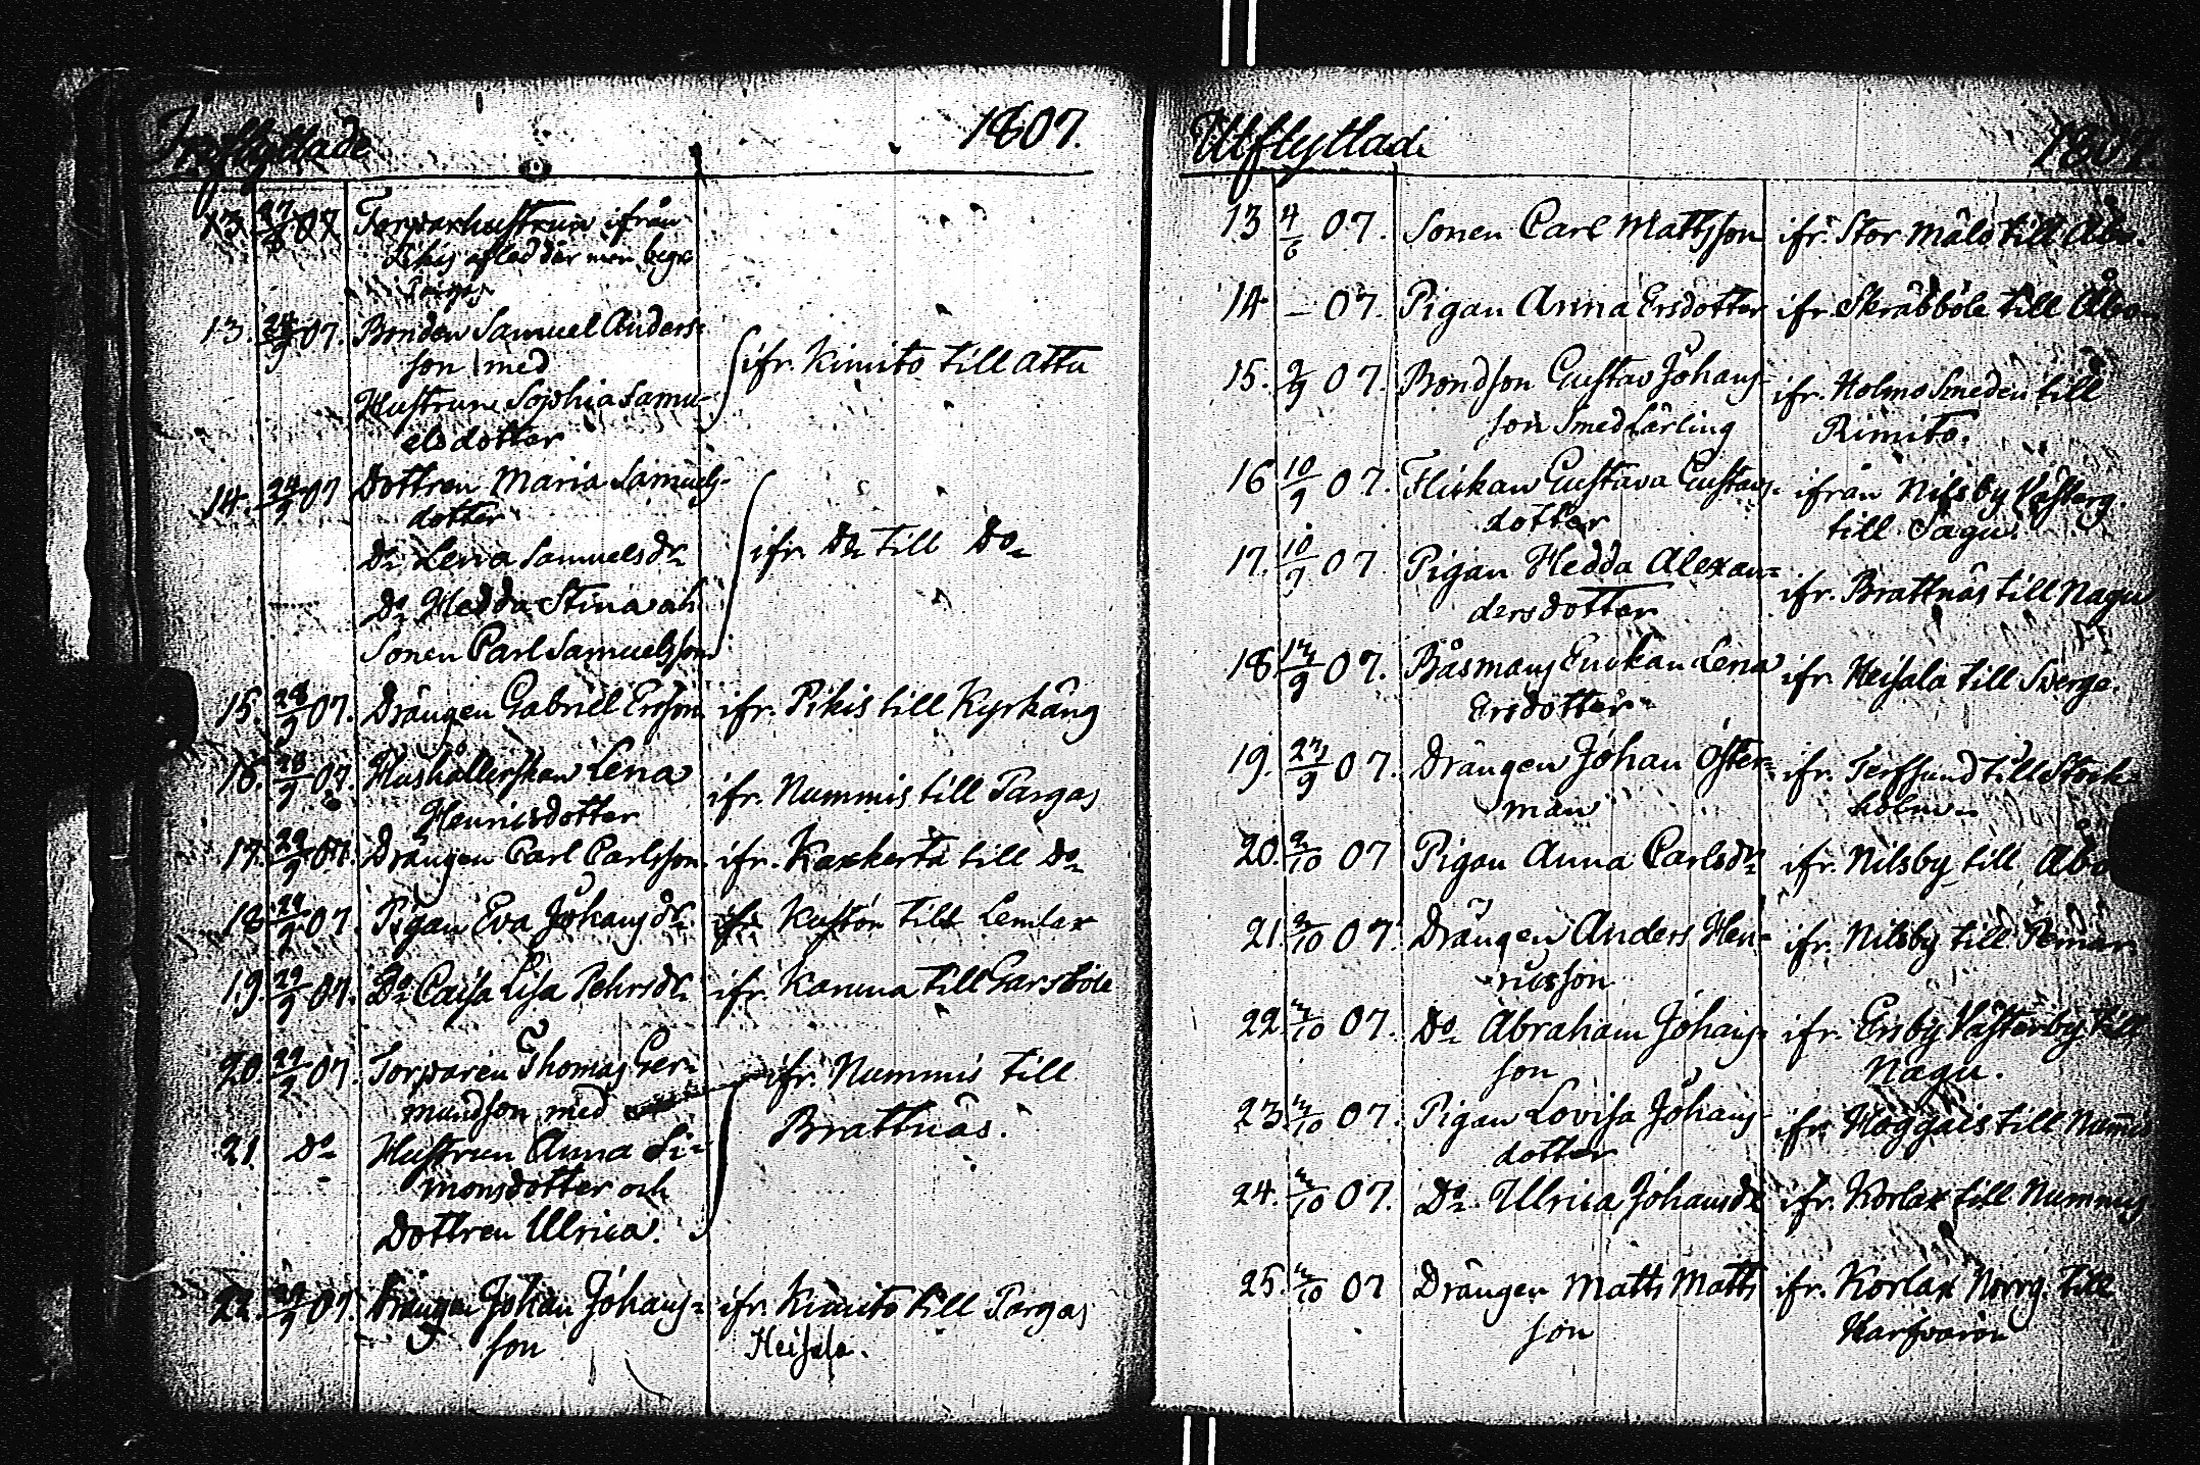 Inflyttade 1807.
13 27/8 07 Torparhustrun ifrån
afled där men
13. 24/9 07. Bonden Samuel Anders-
son med
Hustrun Sophia Samu-
elsdotter
ifr. Kimito till Attu
14. 24/9 07 Dottren Maria Samuels-
dotter
Do Lena Samuelsdr
Do Hedda Stina och
Sonen Carl Samuelsson
ifr. Do till Do
15. 28/9 07. Drängen Gabriel Ersson ifr. Pikis till Kyrkäng
16. 28/9 07. Hushållerskan Lena
Henricsdotter
ifr. Nummis till Pargas
17. 29/9 07. Drängen Carl Carlsson ifr. Kaxkerta till Do
18 29/9 07. Pigan Eva Johansdr. ifr Kustö till Lemlax
19. 29/9 07. Do Caisa Lisa Pehrsdr. ifr. Karuna till Garsböle
20. 29/9 07. Torparen Thomas Ger-
mundson med
21. Do Hustrun Anna Si-
monsdotter och
Dottren Ulrica.
ifr. Nummis till
Brattnäs.
22. 29/9 07. Drängen Johan Johans-
son
ifr. Kimito till Pargas
Heisala.
Utflyttade 1807.
13 4/6 07. Sonen Carl Mattsson ifr. Stor Mälö till Åbo.
14 – 07. Pigan Anna Ersdotter ifr. Skräbböle till Åbo
15. 2/9 07. Bondson Gustav Johans-
son Smed Lärling
ifr. Holmo Smeden till
Rimito.
16 10/9 07. Flickan Gustava Gustavs-
dotter
ifrån Nilsby Västerg.
till Sagu.
17. 10/9 07. Pigan Hedda Alexan-
dersdotter
ifr. Brattnäs till Nagu
18. 17/9 07. Båsmans Enckan Lena
Ersdotter
ifr. Heisala till Sverge.
19. 27/9 07. Drängen Johan Öster-
man
ifr. Terfsund till Stock-
holm.
20. 2/10 07 Pigan Anna Carlsdr ifr. Nilsby till Åbo
21. 2/10 07. Drängen Anders Hen-
ricsson
ifr. Nilsby till Pemar
22. 3/10 07. Do Abraham Johans-
son
ifr. Ersby Västerby till
Nagu.
23. 3/10 07. Pigan Lovisa Johans-
dotter
ifr. Haggais till Num̄is
24. 3/10 07. Do Ulrica Johansdr ifr. Korlax till Nummis
25. 3/10 07 Drängen Matts Matts
son
ifr. Korlax Norrg. till